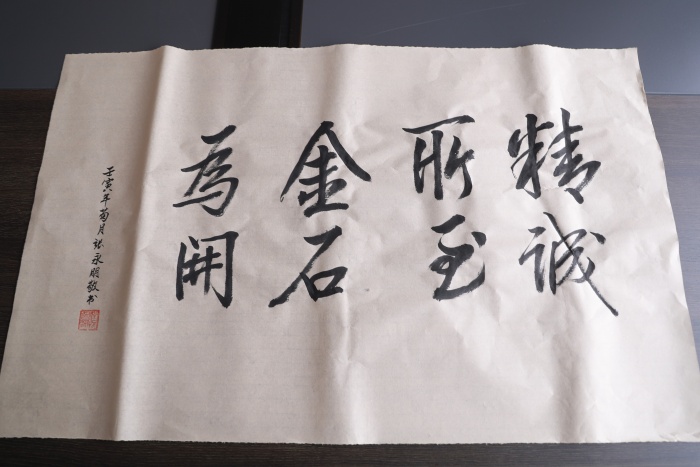 精诚
所至
金石
為開
壬寅年菊月张永明敬书